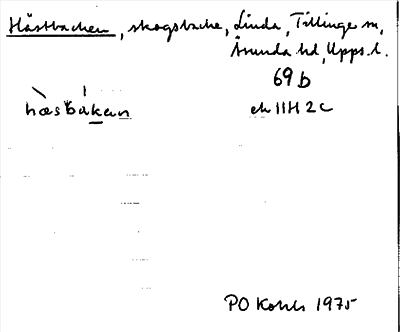 Hästbacken, skogsbacke, Linda, Tillinge sn,
Åsunda hd, Upps. l.
69b
hæsbakan ek 11H 2c
PO Kohls 1975